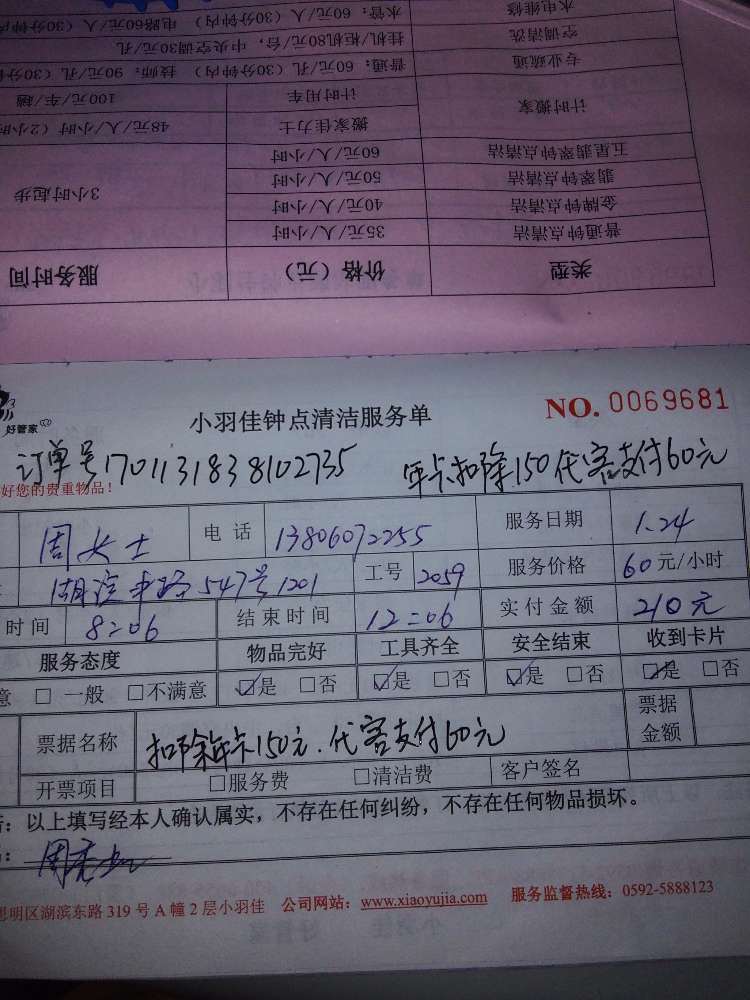 水电维修 水管：60元/人（30分钟内） 电路60元/人（30分钟内
空调清洗 挂机/柜机80元/台，中央空调30元/孔
专业疏通 普通：60元/孔（30分钟内） 技师：90元/孔（30分
计时搬家 计时用车 100元/车/趟
搬家佳力士 48元/人/小时（2小时
五星翡翠钟点清洁 60元/人/小时
翡翠钟点清洁 50元/人/小时 3小时起步
金牌钟点清洁 40元/人/小时
普通钟点清洁 35元/人/小时
类型 价格（元） 服务时间
好管家
小羽佳钟点清洁服务单 NO. 0069681
订单号1701131838102735 年卡扣除150代客支付60元
好您的贵重物品！
周女士 电话 13806072255 服务日期 1.24
湖滨中路547号1201 工号 2059 服务价格 60元/小时
时间 8:06 结束时间 12:06 实付金额 210元
服务态度 物品完好 工具齐全 安全结束 收到卡片
意 □ 一般 □不满意 ☑是 □否 ☑是 □否 ☑是 □否 ☑是 □否
票据名称 扣除年卡150元.代客支付60元 票据金额
开票项目 □服务费 □清洁费 客户签名
：以上填写经本人确认属实，不存在任何纠纷，不存在任何物品损坏。
思明区湖滨东路 319 号 A 幢 2 层小羽佳 公司网站：www.xiaoyujia.com 服务监督热线：0592-5888123